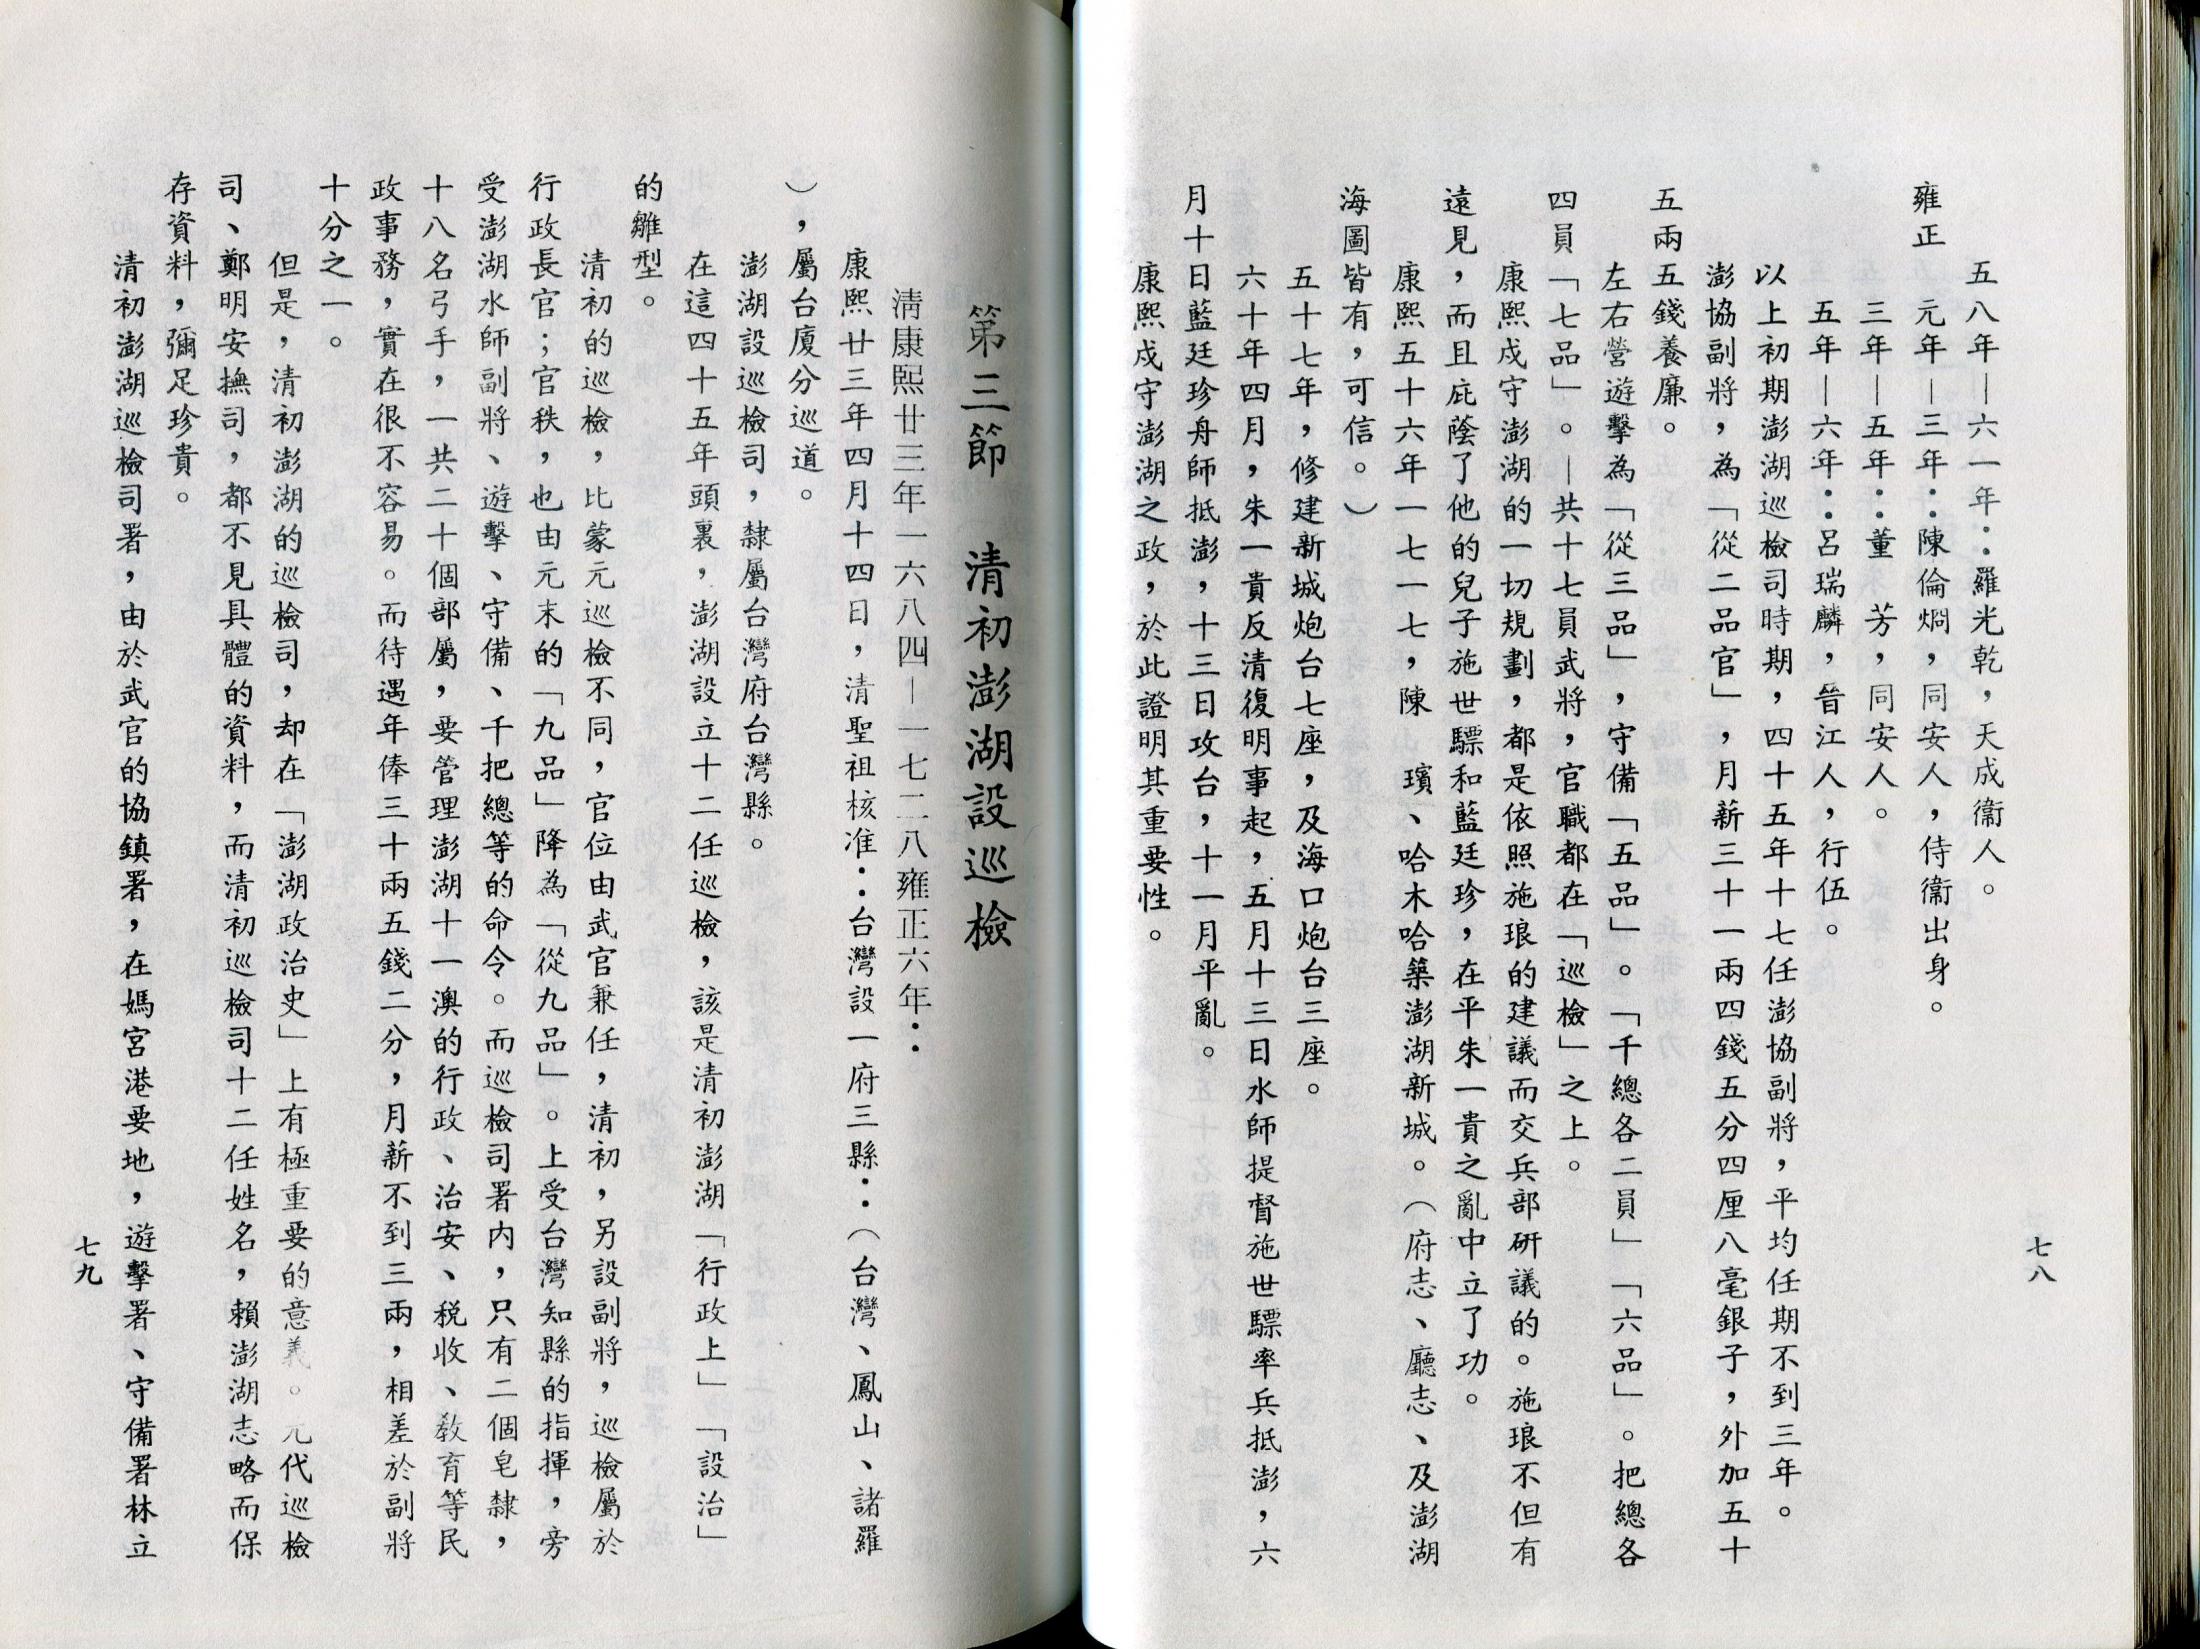 七八
五八年—六一年：羅光乾，天成衞人。
雍正　元年—三年：陳倫烱，同安人，侍衞出身。
三年—五年：董　芳，同安人。
五年—六年：呂瑞麟，晉江人，行伍。
以上初期澎湖巡檢司時期，四十五年十七任澎協副將，平均任期不到三年。
澎協副將，為「從二品官」，月薪三十一兩四錢五分四厘八毫銀子，外加五十
五兩五錢養廉。
左右營遊擊為「從三品」，守備「五品」。「千總各二員」「六品」。把總各
四員「七品」。—共十七員武將，官職都在「巡檢」之上。
康熙戍守澎湖的一切規劃，都是依照施琅的建議而交兵部研議的。施琅不但有
遠見，而且庇蔭了他的兒子施世驃和藍廷珍，在平朱一貴之亂中立了功。
康熙五十六年一七一七，陳　璸、哈木哈築澎湖新城。（府志、廳志、及澎湖
海圖皆有，可信。）
五十七年，修建新城炮台七座，及海口炮台三座。
六十年四月，朱一貴反清復明事起，五月十三日水師提督施世驃率兵抵澎，六
月十日藍廷珍舟師抵澎，十三日攻台，十一月平亂。
康熙戍守澎湖之政，於此證明其重要性。
第三節　清初澎湖設巡檢
清康熙廿三年一六八四—一七二八雍正六年：
康熙廿三年四月十四日，清聖祖核准：台灣設一府三縣：（台灣、鳳山、諸羅
），屬台廈分巡道。
澎湖設巡檢司，隸屬台灣府台灣縣。
在這四十五年頭裏，澎湖設立十二任巡檢，該是清初澎湖「行政上」「設治」
的雛型。
清初的巡檢，比蒙元巡檢不同，官位由武官兼任，清初，另設副將，巡檢屬於
行政長官；官秩，也由元末的「九品」降為「從九品」。上受台灣知縣的指揮，旁
受澎湖水師副將、遊擊、守備、千把總等的命令。而巡檢司署內，只有二個皂隸，
十八名弓手，一共二十個部屬，要管理澎湖十一澳的行政、治安、稅收、教育等民
政事務，實在很不容易。而待遇年俸三十兩五錢二分，月薪不到三兩，相差於副將
十分之一。
但是，清初澎湖的巡檢司，却在「澎湖政治史」上有極重要的意義。元代巡檢
司、鄭明安撫司，都不見具體的資料，而清初巡檢司十二任姓名，賴澎湖志略而保
存資料，彌足珍貴。
清初澎湖巡檢司署，由於武官的協鎮署，在媽宮港要地，遊擊署、守備署林立
七九